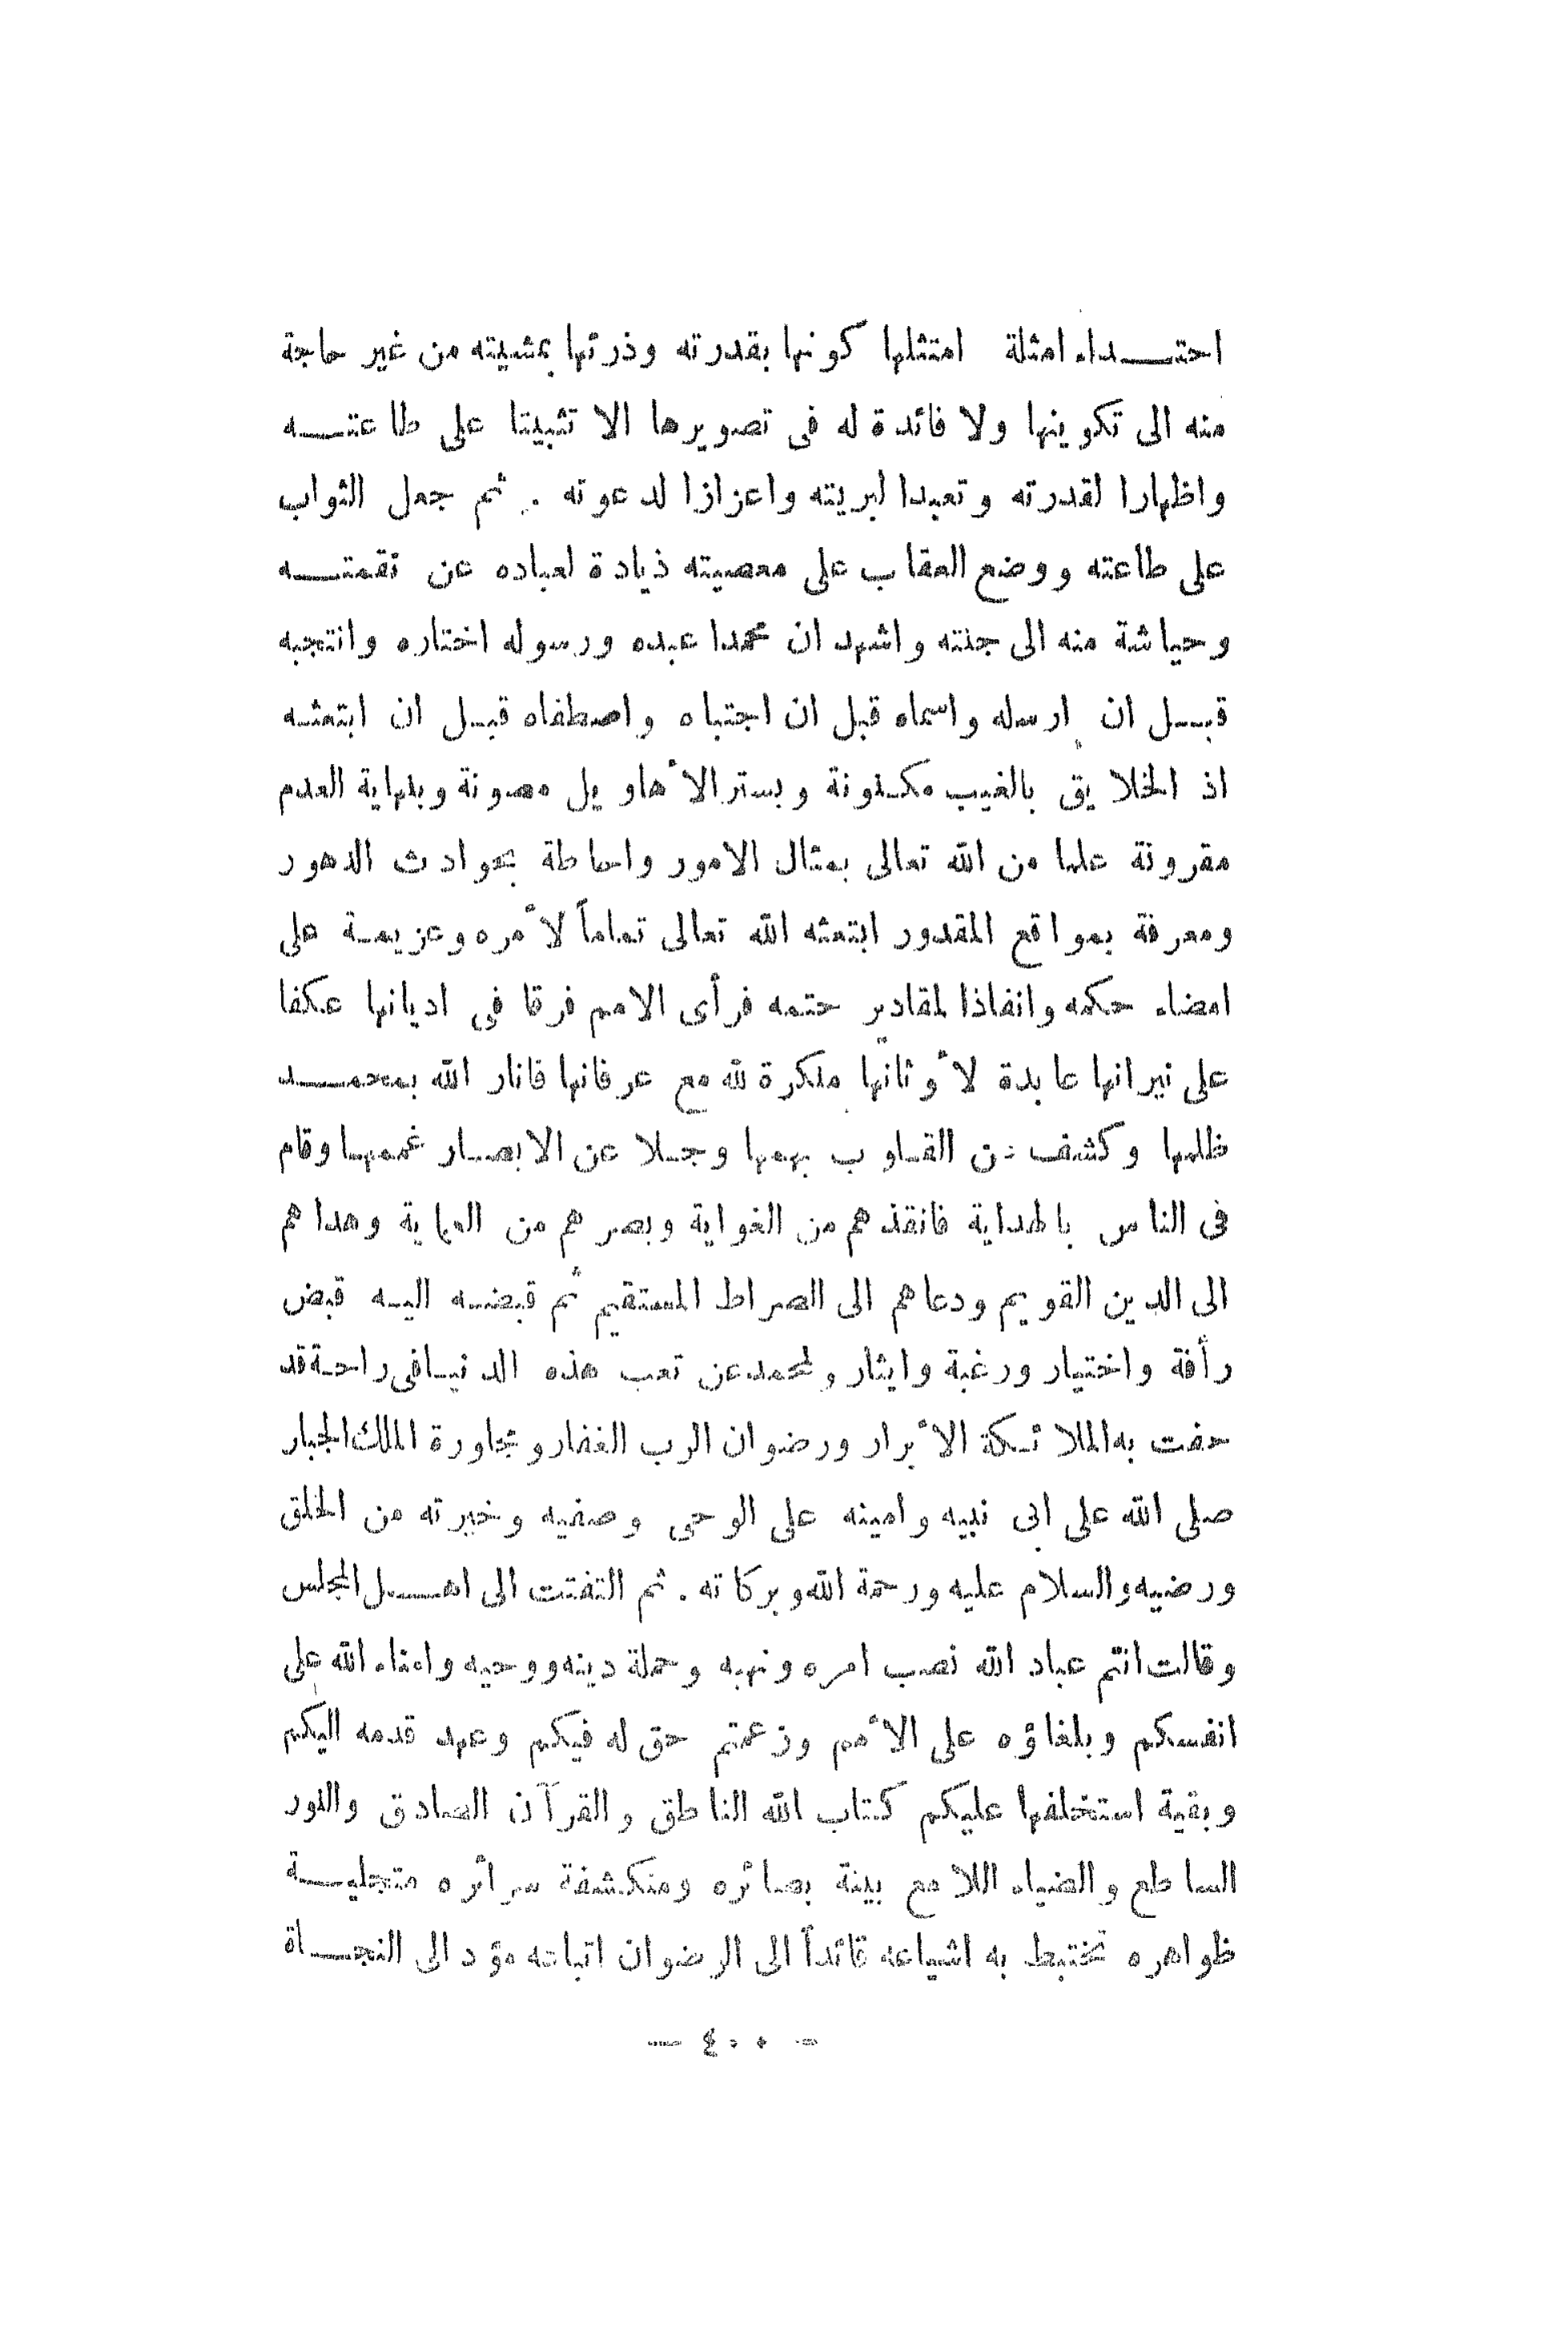 احتـــداء امثلة امتثلها كونها بقدرته وذرئها بمشيته من غير حاجة
منه الى تكوينها ولا فائدة له فى تصويرها الا تثبيتا على طاعتـــه
واظهارا لقدرته وتعبدا لبريته واعزازا لدعوته . ثم جعل الثواب
على طاعته ووضع العقاب على معصيته ذيادة لعباده عن نقمتـــه
وحياشة منه الى جنته واشهد ان محمدا عبده ورسوله اختاره وانتجبه
قبـل ان ارسله واسماه قبل ان اجتباه واصطفاه قبـل ان ابتعثـه
اذ الخلايق بالغيب مكـنونة وبستر الأهاويل مصونة وبنهاية العدم
مقرونة علما من الله تعالى بمثال الامور واحاطة بحوادث الدهور
ومعرفة بمواقع المقدور ابتعثه الله تعالى تماماً لأمره وعزيمـة على
امضاء حكمه وانفاذا لمقادير حتمه فرأى الامم فرقا فى اديانها عكفا
على نيرانها عابدة لأوثانها منكرة لله مع عرفانها فانار الله بمحمـــد
ظلمها وكشف القـلوب بهمها وجـلا عن الابصـار غممهـا وقام
فى الناس بالهداية فانقذهم من الغواية وبصرهم من العماية وهداهم
الى الدين القويم ودعاهم الى الصراط المستقيم ثم قبضـه اليـه قبض
رأفة واختيار ورغبة وايثار ولمحمد عن تعب هذه الدنيـا فى راحـة قد
حفت به الملائـكة الأبرار ورضوان الرب الغفار ومجاورة الملك الجبار
صلى الله على ابى نبيه وامينه على الوحى وصفيه وخيرته من الخلق
ورضيه والسلام عليه ورحمة الله وبركاته . ثم التفتت الى اهـــل المجلس
وقالت انتم عباد الله نصب امره ونهيه وحملة دينه ووحيه وامناء الله على
انفسكم وبلغاؤه على الأمم وزعمتم حق له فيكم وعهد قدمه اليكم
وبقية استخلفها عليكم كتاب الله الناطق والقرآن الصادق والنور
الساطع والضياء اللامع بينة بصائره ومنكشفة سرائره متجليـــة
ظواهره تختبط به اشياعه قائداً الى الرضوان اتباعه مؤد الى النجـــاة
— ٤٠٠ —